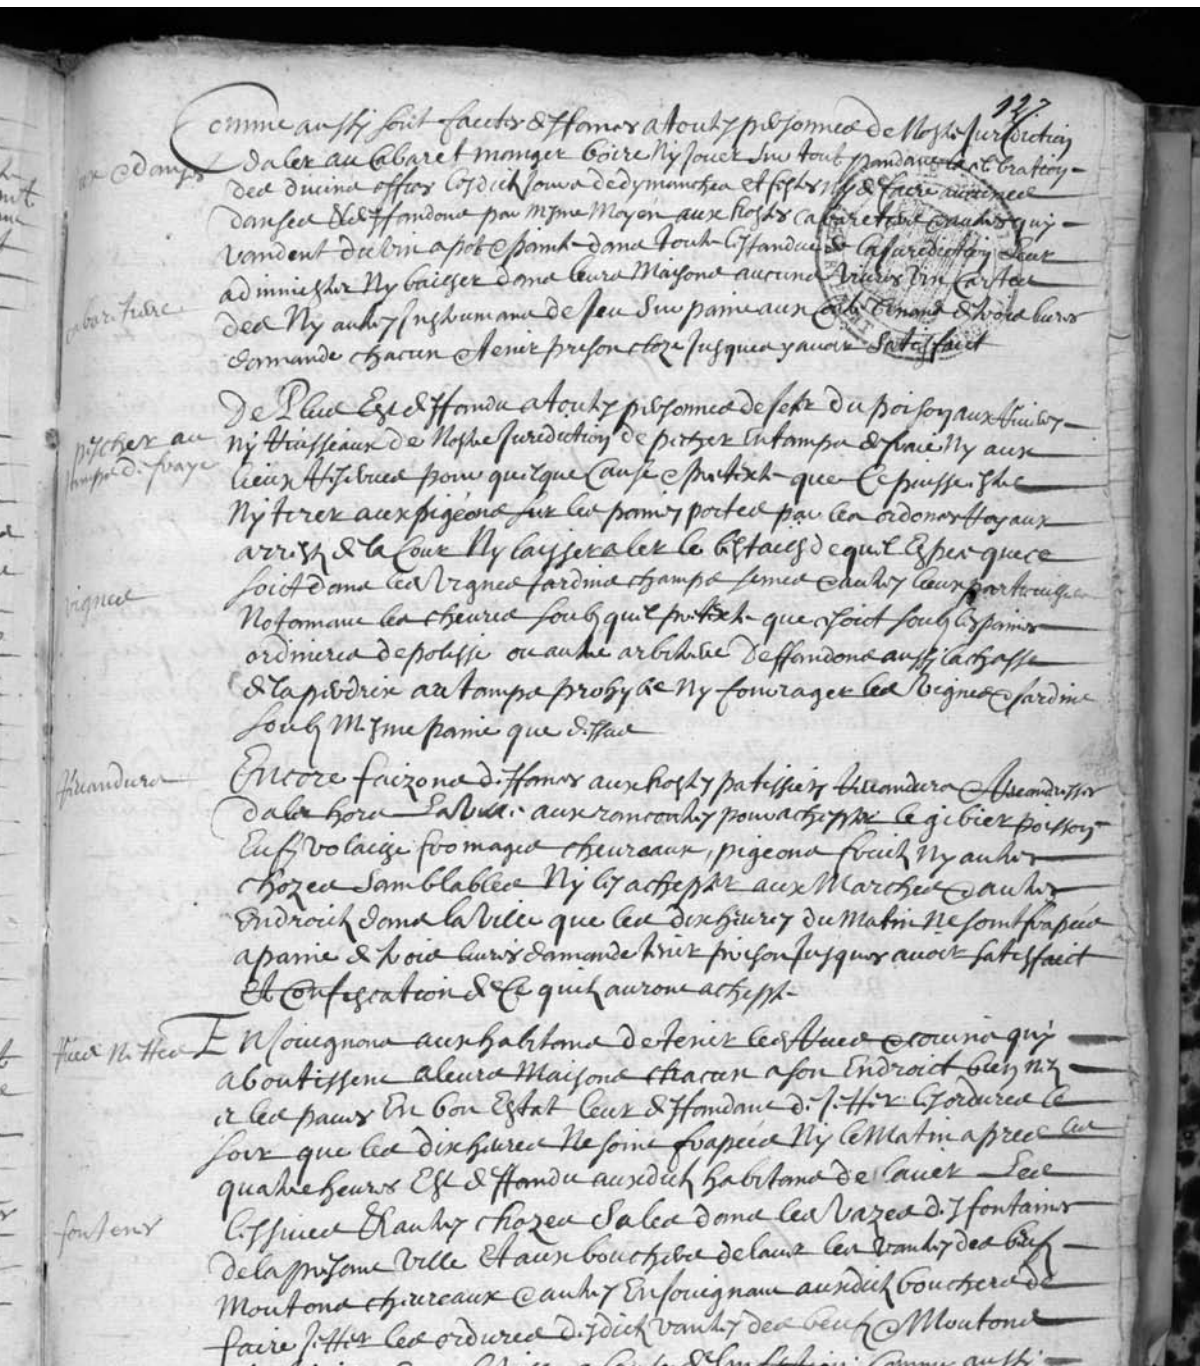 127
Comme aussy sont faictes deffances a toutes personnes de nostre jurediction
jeux e danses
daler au cabaret manger boire ny jouer sur tout pandant la celebration
des divins offices lesdictz jours de dymanches et festes ny de faire aucunes
danses deffandons par mesme moyen aux hostes cabaretiers e autres quy
vandent du vin a pot e painte dans toute lestandue de la jurediction leur
administrer ny baisser dans leurs maisons aucuns vivres vin cartes
cabaretiers
des ny autres instrumans de jeu sur paine aux de trois livres
damande chacun e tenir prison cloze jusques y avoir satisfaict
De plus est deffandu a toutes personnes de jeter du poison aux rivieres
pescher au
temps de fraye
ny ruisseaux de nostre jurediction de pescher en tamps de fraie ny aux
lieux reserves pour quelque cause e pretexte que ce puisse estre
ny tirer aux pigeons sur les paines portees par les ordonnances royaux
arrestz de la cour ny laisser aler le bestailh de quel espece que ce
vignes
soict dans les vignes jardins champs semes e autres lieux particuliers
notamant les chevres soubz quel pretexte que ce soict soubz les paines
ordineres de polisse ou autre arbitrere deffandons aussy la chasse
de la perdrix au tamps prohybe ny fourrager les vignes e jardins
soubz mesme paine que dessus
revandurs
Encore faizons deffances aux hostes patissiers revandurs e revandusses
daler hors la ville aux rancontres pour achepter le gibier poisson
eufz volaille fromages chevreaux pigeons fruitz ny autres
chozes samblables ny les achepter aux marches e autres
endroictz dans la ville que les dix heures du matin ne soint frapees
a paine de trois livres damande tenir prison jusques avoir satisfaict
et confiscation de ce quilz auront achepte
rues nettes
Enjoignons aux habitans de tenir les rues e couvins quy
aboutissent a leurs maisons chacun a son endroict bien netz
et les paves en bon estat leur deffandant de jetter les ordures le
soir que les dix heures ne soint frapees ny le matin apres les
quatre heures est deffandu ausdictz habitans de laver les
fontenes
lessives e autres chozes sales dans les vazes des fontaines
de la presante ville et aux bouchers de laver les vantres des beufz
moutons chevreaux e autres enjoignant ausdictz bouchers de
faire jetter les ordures desdictz vantres des beufz e moutons